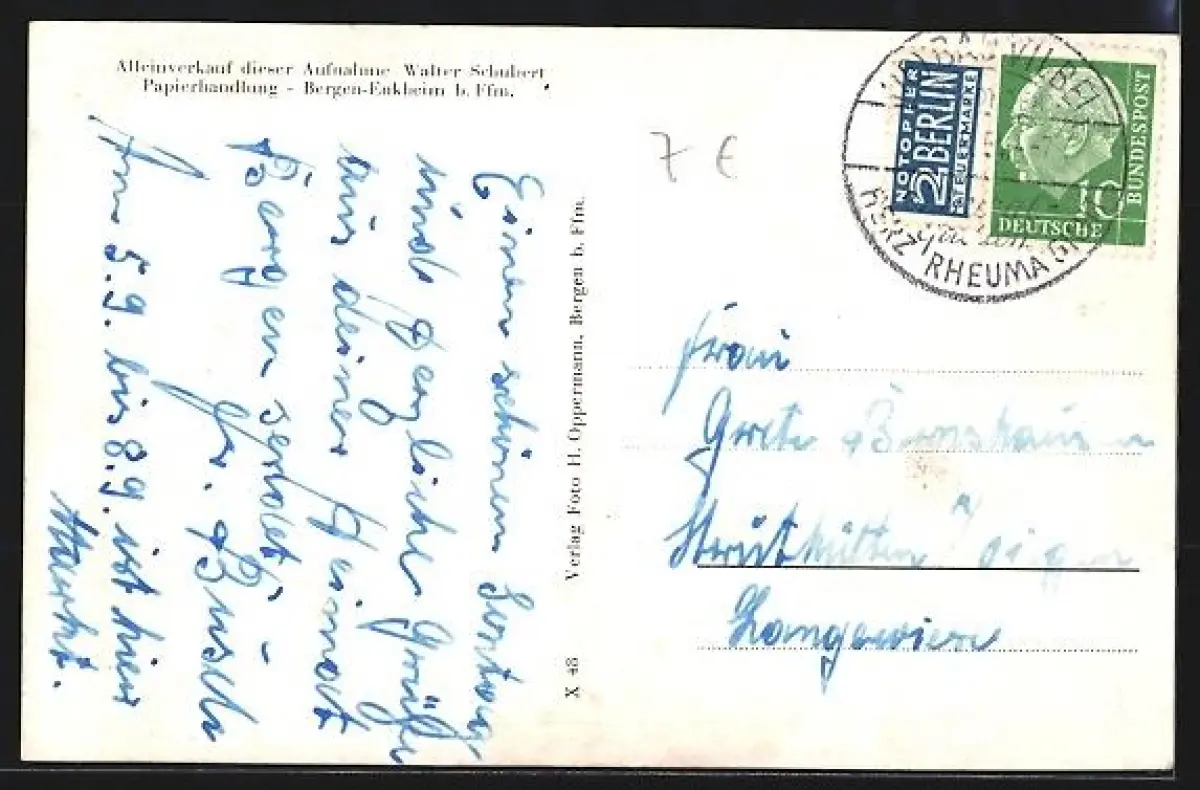 Alleinverkauf dieser Aufnahme Walter Schubert
Papierhandlung - Bergen-Enkheim b. Ffm.
Einen schönen Sontag
und herzliche Grüße
aus deiner Heimat
Bergen sendet -
Fr. Busch
Am 5.9. bis 8.9. ist hier
Markt.
Verlag Foto H. Oppermann, Bergen b. Ffm.
X 48
7 €
BAD VILBEL
HERZ RHEUMA
NOTOPFER
2 BERLIN
STEUERMARKE
10
DEUTSCHE
BUNDESPOST
Frau
Grete
Struthütten